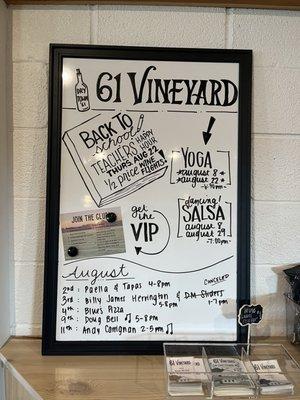 61 VINEYARD
DRY
DOWN
61
BACK TO
school
TEACHERS
HAPPY
HOUR
THURS. AUG 22
1/2 PRICE WINE
FLIGHTS
YOGA
august 8
august 22
6:30PM
JOIN THE CLUB
get
the
VIP
dancing!
SALSA
august 8
august 29
7:00PM
August
CANCELED
2nd : Paella & Tapas 4-8pm
3rd : Billy James Herrington & D.M. Shorts
5-8pm
1-7pm
4th : Blues Pizza
9th : Doug Bell 5-8pm
11th : Andy Carrigan 2-5pm
61 VINEYARD
61 VINEYARD